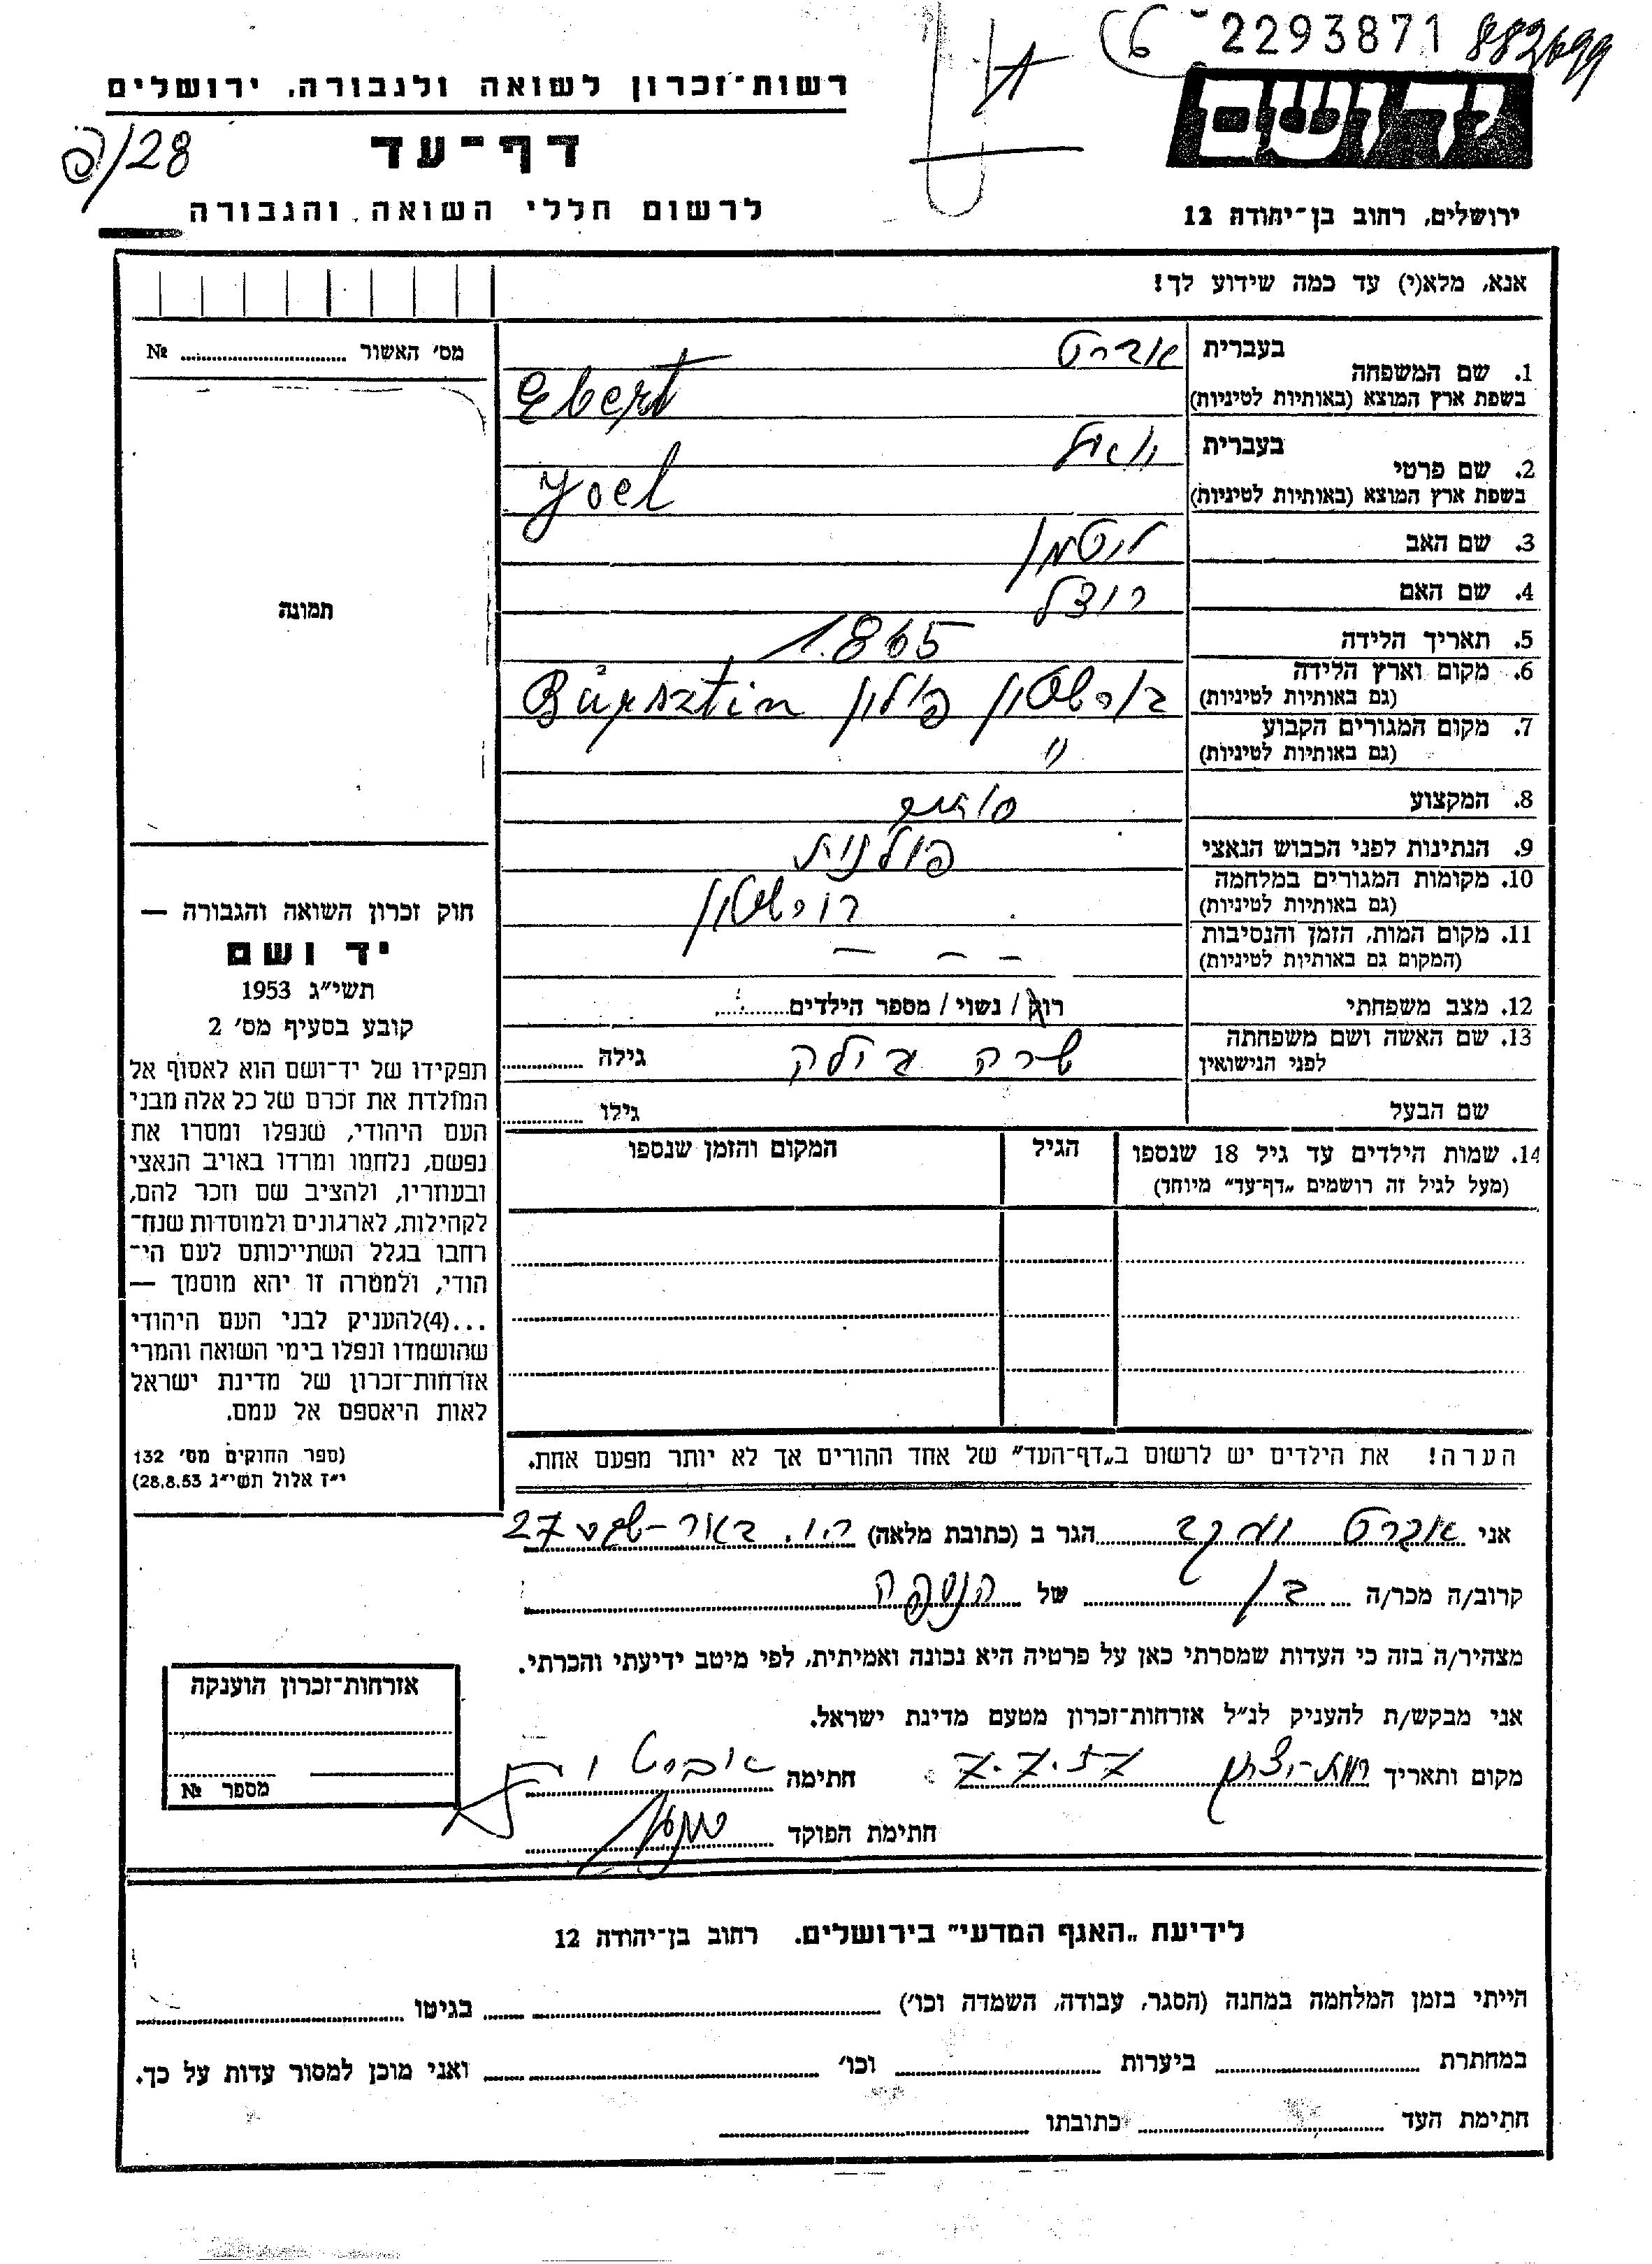 2293871
882699
רשות־זכרון לשואה ולגבורה, ירושלים
יד ושם
דף־עד
/28
לרשום חללי השואה והגבורה
ירושלים, רחוב בן־יהודה 12
אנא, מלא(י) עד כמה שידוע לך!
מס׳ האשור № 
תמונה
1. שם המשפחה בעברית אברט
בשפת ארץ המוצא (באותיות לטיניות) Ebert
2. שם פרטי בעברית יואל
בשפת ארץ המוצא (באותיות לטיניות) Yoel
3. שם האב ליטמן
4. שם האם רוצל
5. תאריך הלידה 1865
6. מקום וארץ הלידה (גם באותיות לטיניות) בורשטין פולין Bursztin
7. מקום המגורים הקבוע (גם באותיות לטיניות) "
8. המקצוע סוחר
9. הנתינות לפני הכבוש הנאצי פולנית
10. מקומות המגורים במלחמה (גם באותיות לטיניות) בורשטין
11. מקום המות, הזמן והנסיבות (המקום גם באותיות לטיניות) – – –
12. מצב משפחתי רווק / נשוי / מספר הילדים
13. שם האשה ושם משפחתה לפני הנישואין שרה גילה
שם הבעל גילו
14. שמות הילדים עד גיל 18 שנספו הגיל המקום והזמן שנספו
(מעל לגיל זה רושמים „דף־עד" מיוחד)
הערה! את הילדים יש לרשום ב„דף־העד" של אחד ההורים אך לא יותר מפעם אחת.
חוק זכרון השואה והגבורה —
יד ושם
תשי״ג 1953
קובע בסעיף מס׳ 2
תפקידו של יד־ושם הוא לאסוף אל
המולדת את זכרם של כל אלה מבני
העם היהודי, שנפלו ומסרו את
נפשם, נלחמו ומרדו באויב הנאצי
ובעוזריו, ולהציב שם וזכר להם,
לקהילות, לארגונים ולמוסדות שנח־
רבו בגלל השתייכותם לעם הי־
הודי, ולמטרה זו יהא מוסמך —
...(4)להעניק לבני העם היהודי
שהושמדו ונפלו בימי השואה והמרי
אזרחות־זכרון של מדינת ישראל
לאות היאספם אל עמם.
(ספר החוקים מס׳ 132
י״ז אלול תשי״ג 28.8.53)
אני אברט יעקב הגר ב (כתובת מלאה) רח. באר־שבע 27
קרוב/ה מכר/ה בן של הנספה
מצהיר/ה בזה כי העדות שמסרתי כאן על פרטיה היא נכונה ואמיתית, לפי מיטב ידיעתי והכרתי.
אני מבקש/ת להעניק לנ״ל אזרחות־זכרון מטעם מדינת ישראל.
מקום ותאריך 7.7.57 חתימה אברט
חתימת הפוקד
אזרחות־זכרון הוענקה
מספר №
לידיעת „האגף המדעי" בירושלים. רחוב בן־יהודה 12
הייתי בזמן המלחמה במחנה (הסגר, עבודה, השמדה וכו׳) בגיטו
במחתרת ביערות וכו׳ ואני מוכן למסור עדות על כך.
חתימת העד כתובתו